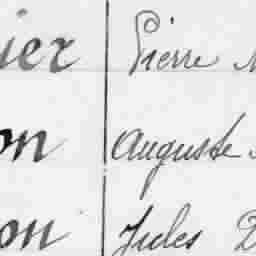 ier Pierre
on Auguste
on Jules